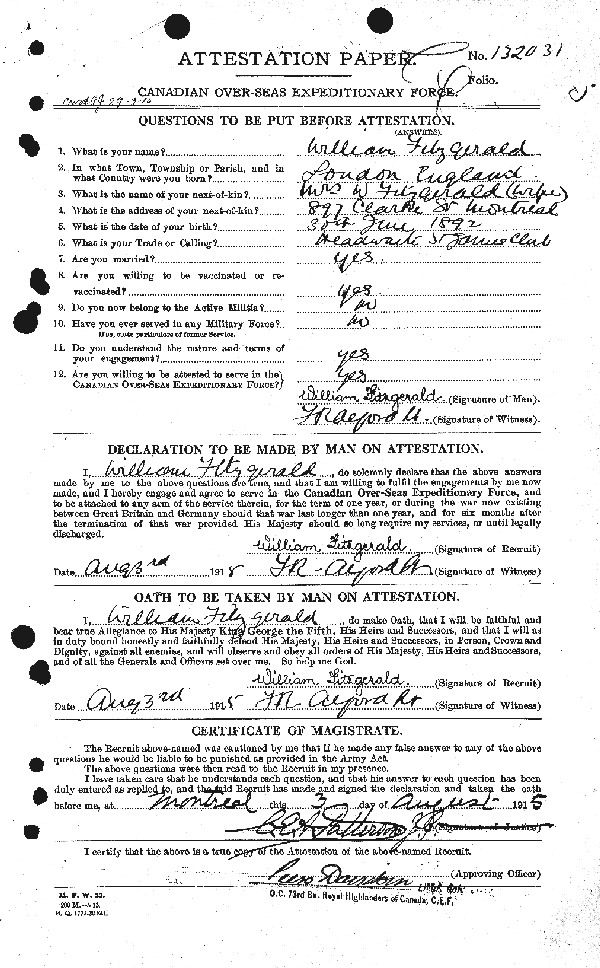 ATTESTATION PAPER.
No. 132031
Folio.
CANADIAN OVER-SEAS EXPEDITIONARY FORCE.
QUESTIONS TO BE PUT BEFORE ATTESTATION.
(ANSWERS)
1. What is your name? William Fitzgerald
2. In what Town, Township or Parish, and in
what Country were you born? London England
3. What is the name of your next-of-kin? Mrs W Fitzgerald (wife)
4. What is the address of your next-of-kin? 897 Clarke St Montreal
5. What is the date of your birth? 30th June 1892
6. What is your Trade or Calling? Headwaiter St James Club
7. Are you married? yes
8. Are you willing to be vaccinated or re-
vaccinated? yes
9. Do you now belong to the Active Militia? no
10. Have you ever served in any Military Force? no
If so, state particulars of former Service.
11. Do you understand the nature and terms of
your engagement? yes
12. Are you willing to be attested to serve in the
CANADIAN OVER-SEAS EXPEDITIONARY FORCE? yes
William Fitzgerald (Signature of Man).
FR Alford Lt. (Signature of Witness).
DECLARATION TO BE MADE BY MAN ON ATTESTATION.
I, William Fitzgerald, do solemnly declare that the above answers
made by me to the above questions are true, and that I am willing to fulfil the engagements by me now
made, and I hereby engage and agree to serve in the Canadian Over-Seas Expeditionary Force, and
to be attached to any arm of the service therein, for the term of one year, or during the war now existing
between Great Britain and Germany should that war last longer than one year, and for six months after
the termination of that war provided His Majesty should so long require my services, or until legally
discharged.
William Fitzgerald (Signature of Recruit)
Date Aug 3rd 1915 FR Alford Lt (Signature of Witness)
OATH TO BE TAKEN BY MAN ON ATTESTATION.
I, William Fitzgerald, do make Oath, that I will be faithful and
bear true Allegiance to His Majesty King George the Fifth, His Heirs and Successors, and that I will as
in duty bound honestly and faithfully defend His Majesty, His Heirs and Successors, in Person, Crown and
Dignity, against all enemies, and will observe and obey all orders of His Majesty, His Heirs and Successors,
and of all the Generals and Officers set over me. So help me God.
William Fitzgerald (Signature of Recruit)
Date Aug 3rd 1915 FR Alford Lt (Signature of Witness)
CERTIFICATE OF MAGISTRATE.
The Recruit above-named was cautioned by me that if he made any false answer to any of the above
questions he would be liable to be punished as provided in the Army Act.
The above questions were then read to the Recruit in my presence.
I have taken care that he understands each question, and that his answer to each question has been
duly entered as replied to, and the said Recruit has made and signed the declaration and taken the oath
before me, at Montreal this 3 day of August 1915
(Signature of Justice)
I certify that the above is a true copy of the Attestation of the above-named Recruit.
(Approving Officer)
O.C. 73rd Bn. Royal Highlanders of Canada, C.E.F.
M. F. W. 23.